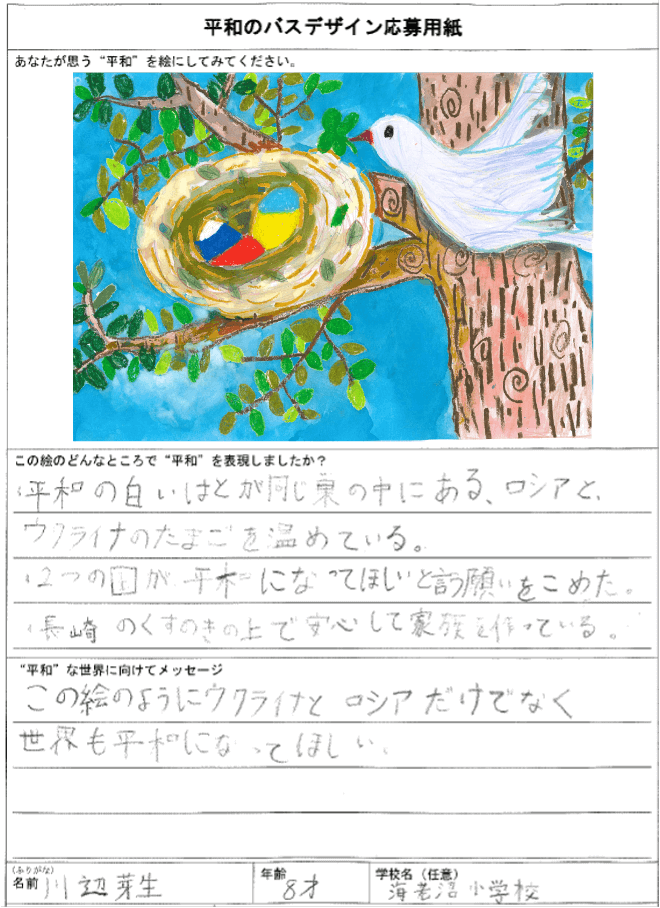 平和のバスデザイン応募用紙
あなたが思う“平和”を絵にしてみてください。
この絵のどんなところで“平和”を表現しましたか？
・平和の白いはとが同じ巣の中にある、ロシアと、
ウクライナのたまごを温めている。
・2つの国が平和になってほしいと言う願いをこめた。
・長崎のくすのきの上で安心して家族を作っている。
“平和”な世界に向けてメッセージ
この絵のようにウクライナとロシアだけでなく
世界も平和になってほしい、
(ふりがな)
名前 川辺芽生 年齢 8才 学校名（任意） 海老沼小学校